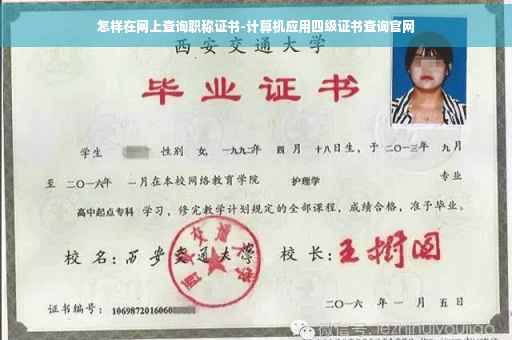 怎样在网上查询职称证书-计算机应用四级证书查询官网
西安交通大学
毕业证书
学生 性别 女, 一九九二年 四 月 十八日生, 于二〇一三年 九月
至 二〇一六年 一月在本校网络教育学院 护理学 专业
高中起点专科 学习, 修完教学计划规定的全部课程, 成绩合格, 准予毕业。
校 名: 西安交通大学 校 长: 王树国
证书编号: 1069872016060
二〇一六 年 一 月 五 日
微信号: jiezhinuiyoujiao